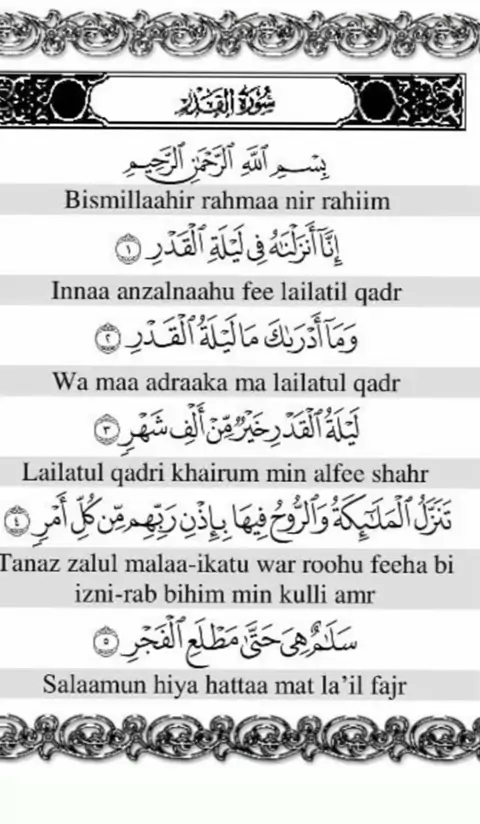 سُورَةُ الْقَدْرِ
بِسْمِ اللَّهِ الرَّحْمَٰنِ الرَّحِيمِ
Bismillaahir rahmaa nir rahiim
إِنَّا أَنزَلْنَاهُ فِي لَيْلَةِ الْقَدْرِ ١
Innaa anzalnaahu fee lailatil qadr
وَمَا أَدْرَاكَ مَا لَيْلَةُ الْقَدْرِ ٢
Wa maa adraaka ma lailatul qadr
لَيْلَةُ الْقَدْرِ خَيْرٌ مِّنْ أَلْفِ شَهْرٍ ٣
Lailatul qadri khairum min alfee shahr
تَنَزَّلُ الْمَلَائِكَةُ وَالرُّوحُ فِيهَا بِإِذْنِ رَبِّهِم مِّن كُلِّ أَمْرٍ ٤
Tanaz zalul malaa-ikatu war roohu feeha bi
izni-rab bihim min kulli amr
سَلَامٌ هِيَ حَتَّىٰ مَطْلَعِ الْفَجْرِ ٥
Salaamun hiya hattaa mat la’il fajr